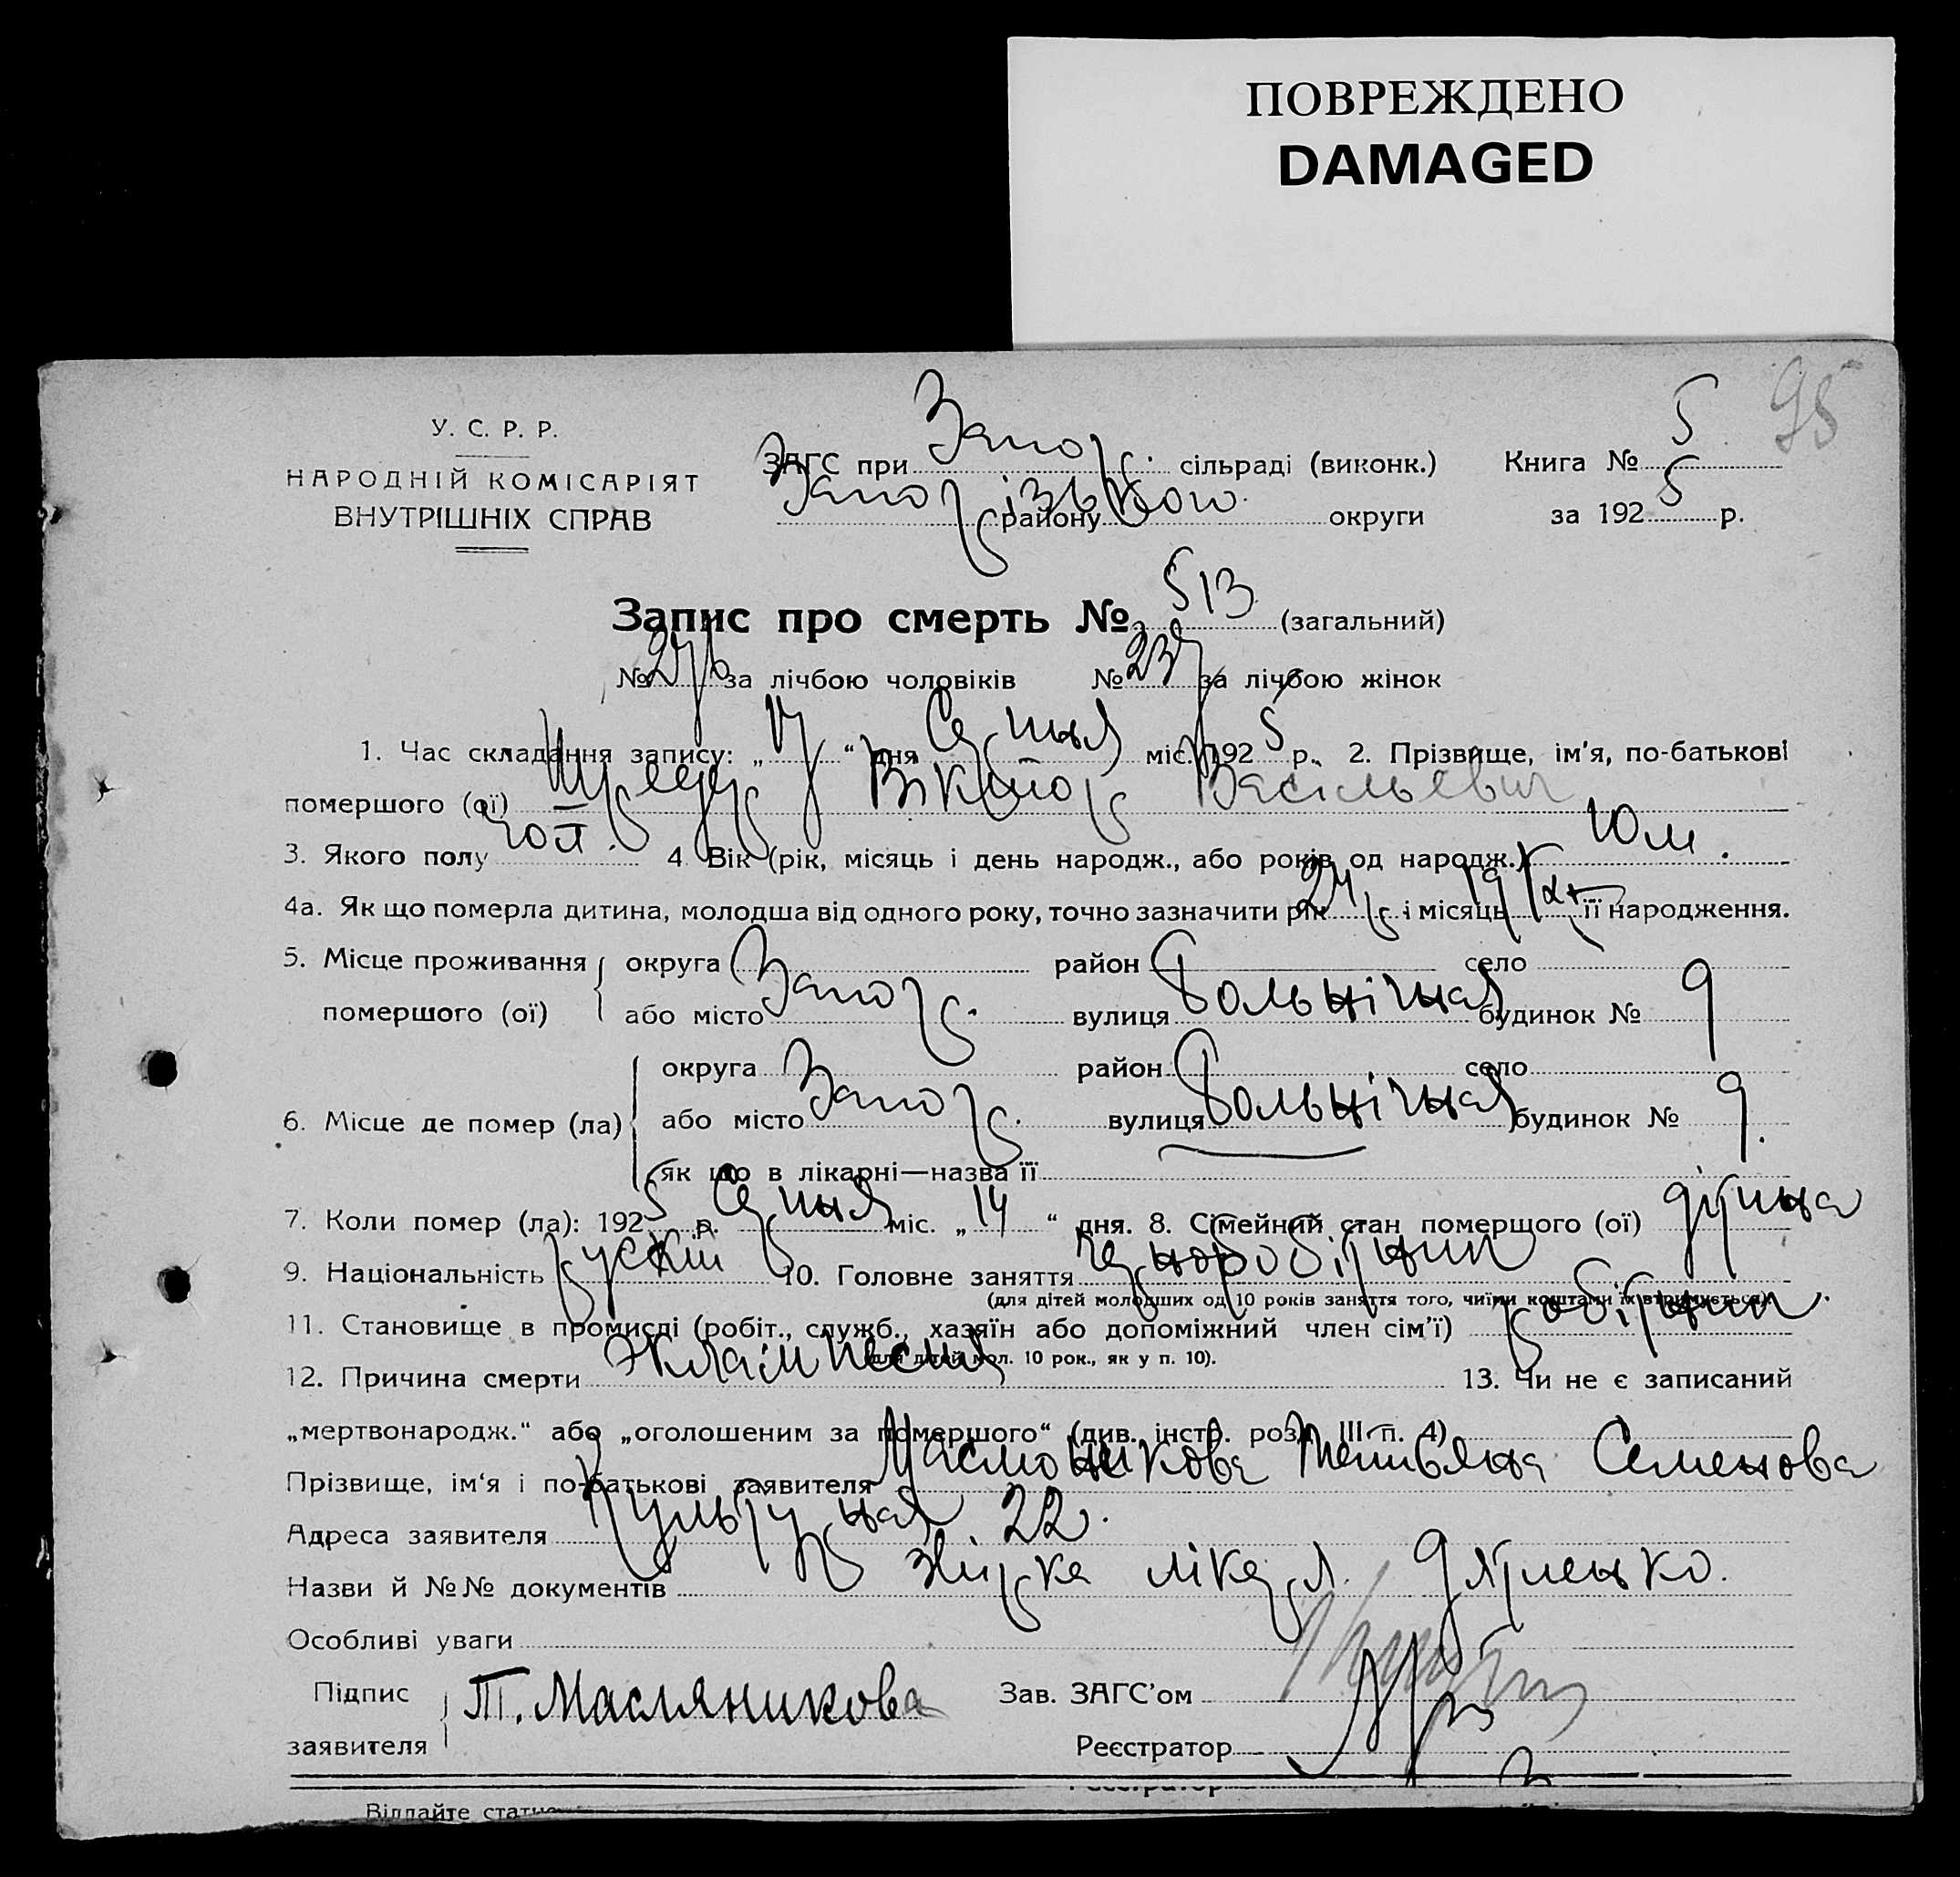 ПОВРЕЖДЕНО
DAMAGED
95
У. С. Р. Р.
НАРОДНІЙ КОМІСАРІЯТ
ВНУТРІШНІХ СПРАВ
ЗАГС при Запор. сільраді (виконк.)
Запорізького району округи
Книга № 5
за 1925 р.
Запис про смерть № 513 (загальний)
№ 276 за лічбою чоловіків № 237 за лічбою жінок
1. Час складання запису: „17“ дня Серпня міс. 1925 р. 2. Прізвище, ім'я, по-батькові
помершого (ої) Віктор Васільевич
3. Якого полу чол. 4. Вік (рік, місяць і день народж., або років од народж.) 10 м.
4а. Як що померла дитина, молодша від одного року, точно зазначити рік 24 р і місяць її народження.
5. Місце проживання округа район село
помершого (ої) або місто Запор. вулиця Больнічная будинок № 9
округа район село
6. Місце де помер (ла) або місто Запор. вулиця Больнічная будинок № 9.
як що в лікарні—назва її
7. Коли помер (ла): 1925 р. Серпня міс. „14“ дня. 8. Сімейний стан помершого (ої) дітина
9. Національність рускій 10. Головне заняття чорноробітник
(для дітей молодших од 10 років заняття того, чиїми коштами їх втримується).
11. Становище в промислі (робіт., служб., хазяїн або допоміжний член сім'ї) робітник.
(для дітей мол. 10 рок., як у п. 10).
12. Причина смерти Эклампсия 13. Чи не є записаний
„мертвонародж.“ або „оголошеним за помершого“ (див. інстр. розд. III п. 4)
Прізвище, ім'я і по-батькові заявителя Татьяна Семенова
Адреса заявителя Культурная 22.
Назви й №№ документів лікаря Дятленко.
Особливі уваги
Підпис
заявителя Т. Масляникова
Зав. ЗАГС'ом
Реєстратор
Реєстратор
Віддайте